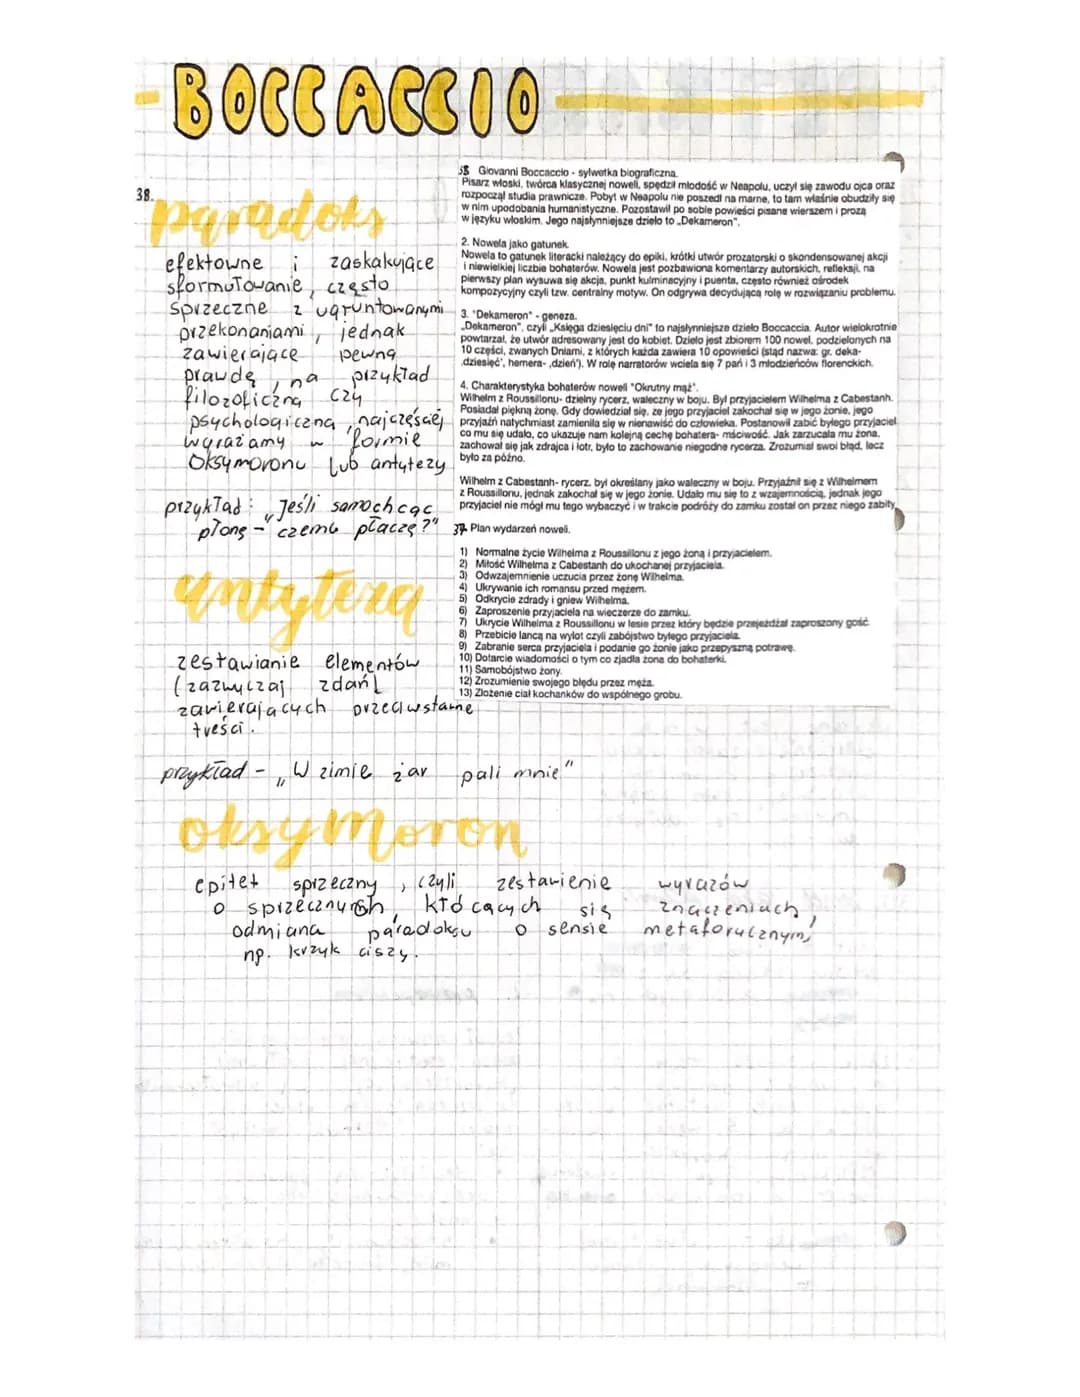 BOCCACCIO
38.
paradoks
efektowne i zaskakujące
sformułowanie, często
sprzeczne z ugruntowanymi
przekonaniami, jednak
zawierające pewną
prawdę, na przykład
filozoficzną czy
psychologiczną, najczęściej
wyrażamy w formie
Oksymoronu lub antytezy
przykład: „Jeśli samochcąc
płonę - czemu płaczę?"
antyteza
zestawianie elementów
(zazwyczaj zdań)
zawierających przeciwstawne
treści.
przykład - „W zimie żar pali mnie"
oksymoron
epitet sprzeczny, czyli zestawienie wyrazów
o sprzecznych, kłócących się znaczeniach,
odmiana paradoksu o sensie metaforycznym,
np. krzyk ciszy.
Giovanni Boccaccio - sylwetka biograficzna.
Pisarz włoski, twórca klasycznej noweli, spędził młodość w Neapolu, uczył się zawodu ojca oraz
rozpoczął studia prawnicze. Pobyt w Neapolu nie poszedł na marne, to tam właśnie obudziły się
w nim upodobania humanistyczne. Pozostawił po sobie powieści pisane wierszem i prozą
w języku włoskim. Jego najsłynniejsze dzieło to „Dekameron".
2. Nowela jako gatunek.
Nowela to gatunek literacki należący do epiki, krótki utwór prozatorski o skondensowanej akcji
i niewielkiej liczbie bohaterów. Nowela jest pozbawiona komentarzy autorskich, refleksji, na
pierwszy plan wysuwa się akcja, punkt kulminacyjny i puenta, często również ośrodek
kompozycyjny czyli tzw. centralny motyw. On odgrywa decydującą rolę w rozwiązaniu problemu.
3. "Dekameron" - geneza.
„Dekameron", czyli „Księga dziesięciu dni" to najsłynniejsze dzieło Boccaccia. Autor wielokrotnie
powtarzał, że utwór adresowany jest do kobiet. Dzieło jest zbiorem 100 nowel, podzielonych na
10 części, zwanych Dniami, z których każda zawiera 10 opowieści (stąd nazwa: gr. deka-
‚dziesięć', hemera- ‚dzień'). W rolę narratorów wciela się 7 pań i 3 młodzieńców florenckich.
4. Charakterystyka bohaterów noweli "Okrutny mąż".
Wilhelm z Roussillonu- dzielny rycerz, waleczny w boju. Był przyjacielem Wilhelma z Cabestanh.
Posiadał piękną żonę. Gdy dowiedział się, że jego przyjaciel zakochał się w jego żonie, jego
przyjaźń natychmiast zamieniła się w nienawiść do człowieka. Postanowił zabić byłego przyjaciela
co mu się udało, co ukazuje nam kolejną cechę bohatera- mściwość. Jak zarzucała mu żona,
zachował się jak zdrajca i łotr, było to zachowanie niegodne rycerza. Zrozumiał swój błąd, lecz
było za późno.
Wilhelm z Cabestanh- rycerz, był określany jako waleczny w boju. Przyjaźnił się z Wilhelmem
z Roussillonu, jednak zakochał się w jego żonie. Udało mu się to z wzajemnością, jednak jego
przyjaciel nie mógł mu tego wybaczyć i w trakcie podróży do zamku został on przez niego zabity.
37. Plan wydarzeń noweli.
1) Normalne życie Wilhelma z Roussillonu z jego żoną i przyjacielem.
2) Miłość Wilhelma z Cabestanh do ukochanej przyjaciela.
3) Odwzajemnienie uczucia przez żonę Wilhelma.
4) Ukrywanie ich romansu przed mężem.
5) Odkrycie zdrady i gniew Wilhelma.
6) Zaproszenie przyjaciela na wieczerzę do zamku.
7) Ukrycie Wilhelma z Roussillonu w lesie przez który będzie przejeżdżał zaproszony gość.
8) Przebicie lancą na wylot czyli zabójstwo byłego przyjaciela.
9) Zabranie serca przyjaciela i podanie go żonie jako przepyszną potrawę.
10) Dotarcie wiadomości o tym co zjadła żona do bohaterki.
11) Samobójstwo żony.
12) Zrozumienie swojego błędu przez męża.
13) Złożenie ciał kochanków do wspólnego grobu.